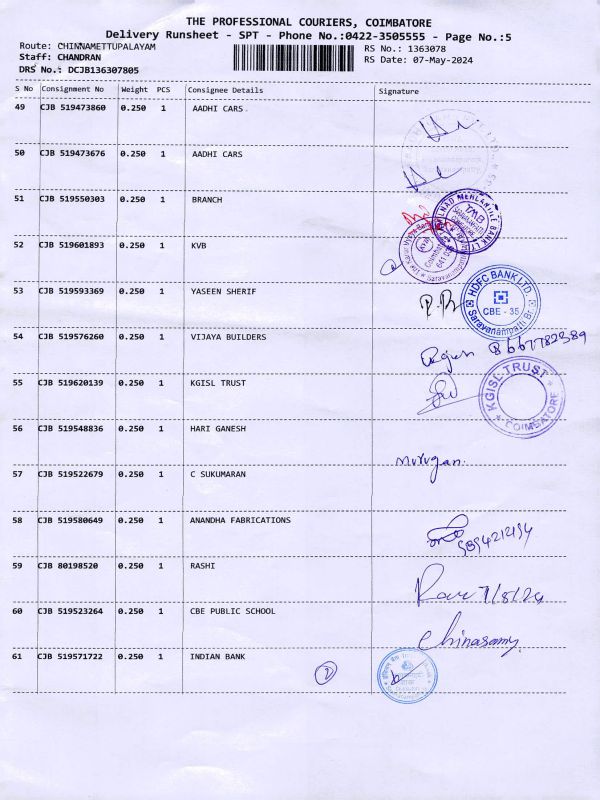 THE PROFESSIONAL COURIERS, COIMBATORE
Delivery Runsheet - SPT - Phone No.:0422-3505555 - Page No.:5
Route: CHINNAMETTUPALAYAM RS No.: 1363078
Staff: CHANDRAN RS Date: 07-May-2024
DRS No.: DCJB136307805
S No Consignment No Weight PCS Consignee Details Signature
49 CJB 519473860 0.250 1 AADHI CARS
50 CJB 519473676 0.250 1 AADHI CARS
51 CJB 519550303 0.250 1 BRANCH
TAMILNAD MERCANTILE BANK LTD
TMB
52 CJB 519601893 0.250 1 KVB
53 CJB 519593369 0.250 1 YASEEN SHERIF
HDFC BANK LTD.
CBE - 35
Saravanampatti Br.
54 CJB 519576260 0.250 1 VIJAYA BUILDERS
55 CJB 519620139 0.250 1 KGISL TRUST
KGISL TRUST
COIMBATORE
56 CJB 519548836 0.250 1 HARI GANESH
Murugan.
57 CJB 519522679 0.250 1 C SUKUMARAN
58 CJB 519580649 0.250 1 ANANDHA FABRICATIONS
59 CJB 80198520 0.250 1 RASHI
7/5/24
60 CJB 519523264 0.250 1 CBE PUBLIC SCHOOL
Chinasamy
61 CJB 519571722 0.250 1 INDIAN BANK